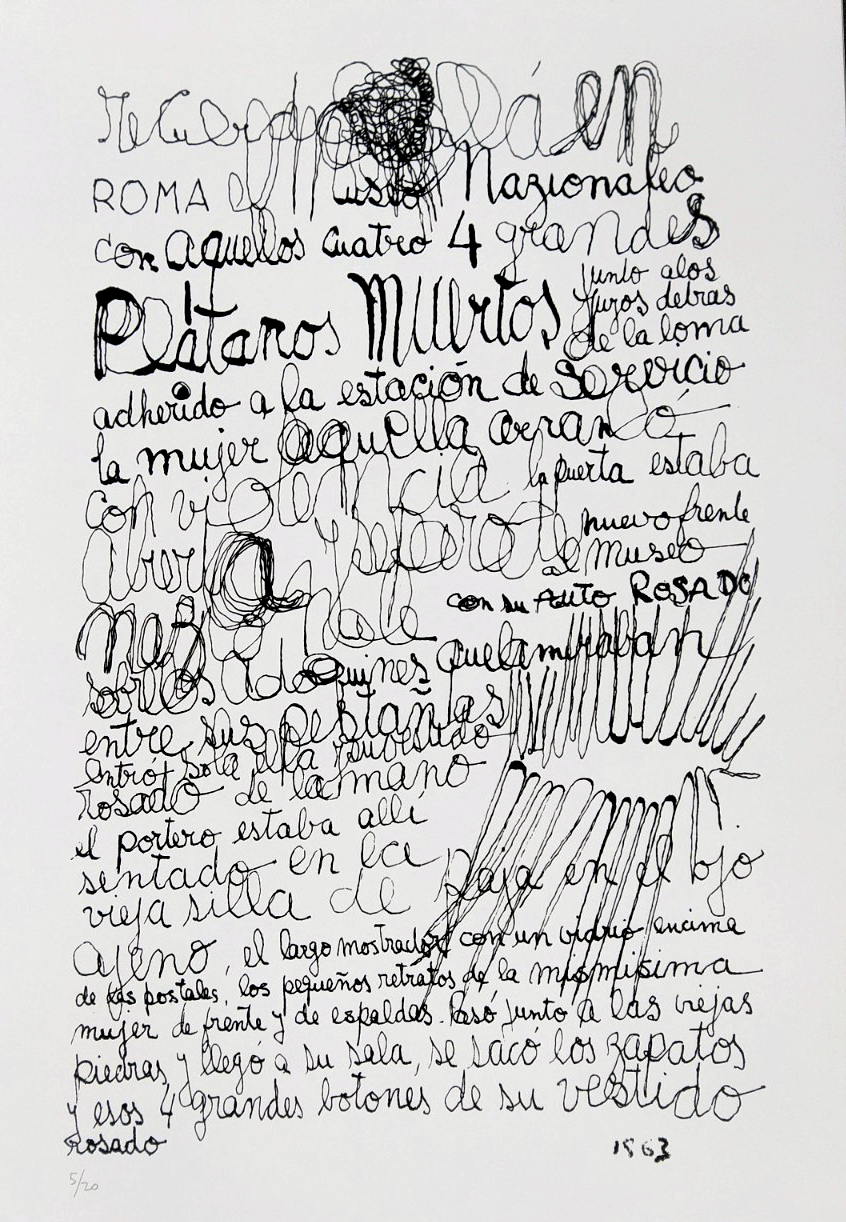 Recuerdo allá en
ROMA el Museo Nazionaleo
con aquellos cuatro 4 grandes
Plátanos Muertos junto a los
yuyos detras
de la loma
adherido a la estación de servicio
la mujer aquella arrancó
con violencia la puerta estaba
abierta y se perote nuevo frente
al museo
con su AUTO ROSADO
nazionale
sobre los adoquines que la miraban
entre sus pestañas
entró sola ella su vestido
rosado de la mano
el portero estaba allí
sentado en la
vieja silla de paja en el ojo
ajeno, el largo mostrador con un vidrio encima
de las postales, los pequeños retratos de la mismisima
mujer de frente y de espaldas. Pasó junto a las viejas
piedras y llegó a su sala, se sacó los zapatos
y esos 4 grandes botones de su vestido
rosado
1963
5/20